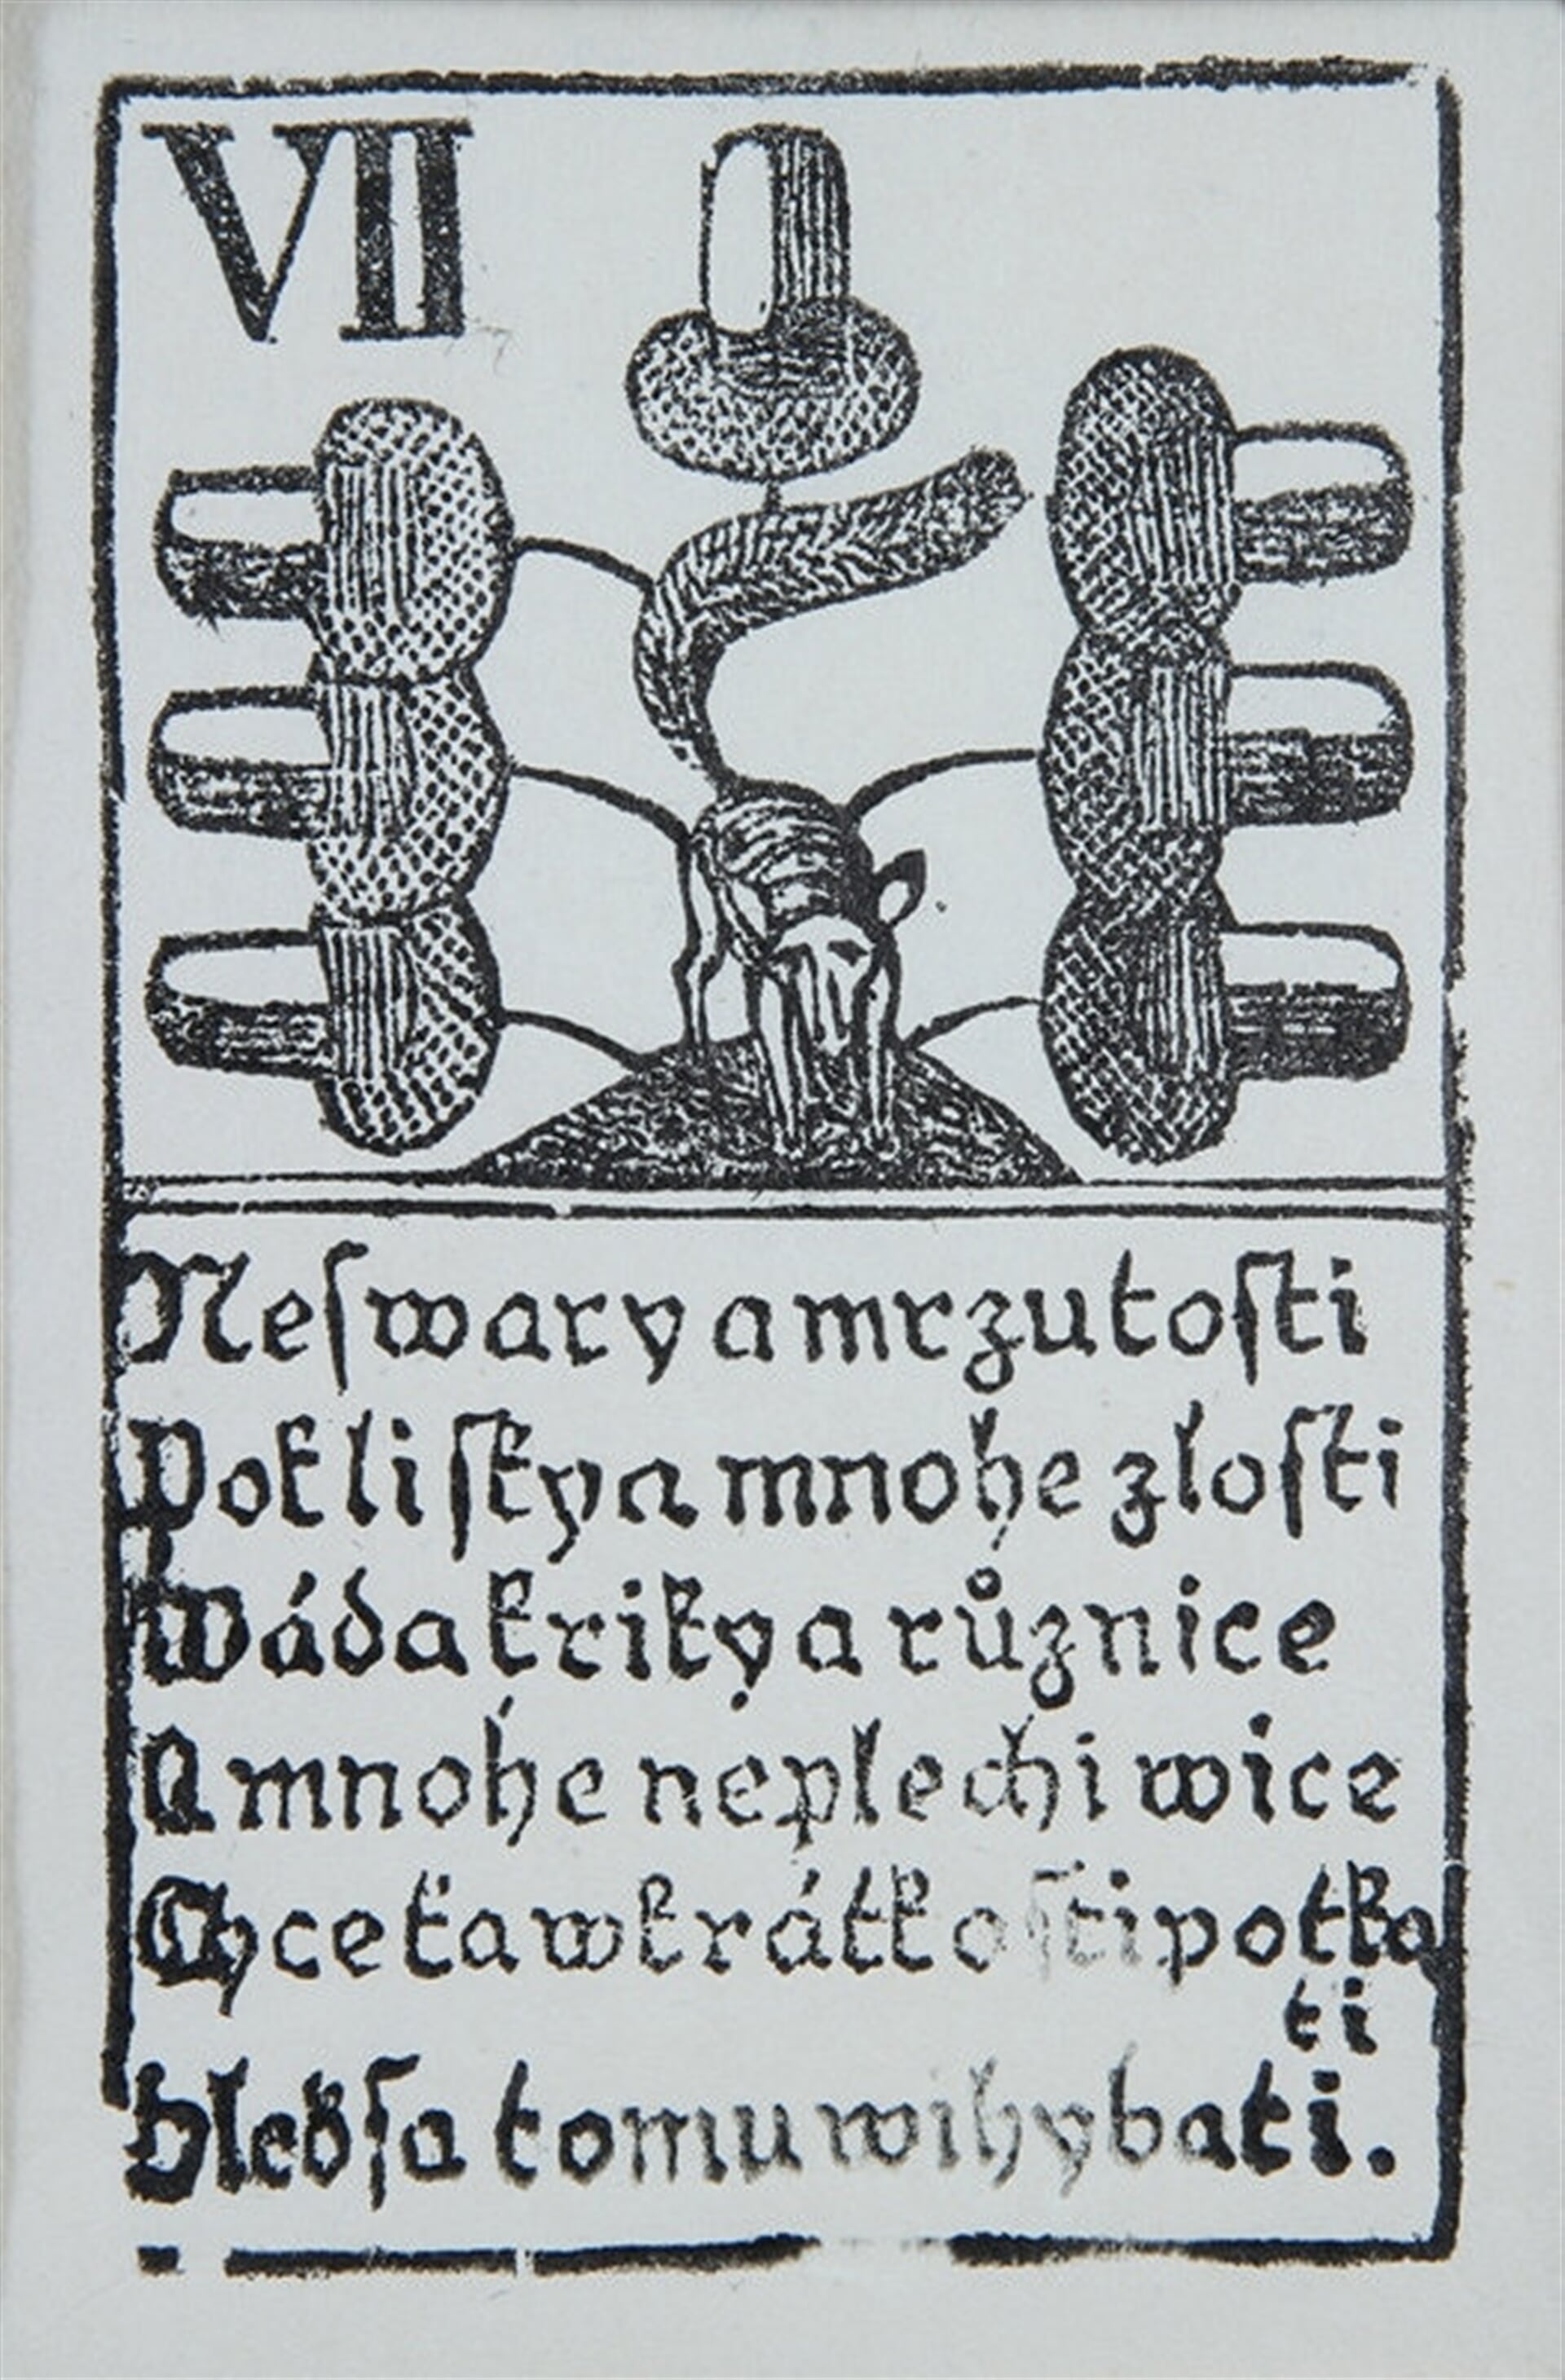 VII
Neſwary a mrzutoſti
Pokliſky a mnohe zloſti
Wáda kriky a různice
A mnohe neplechi wice
Chceťa w krátkoſti potka
ti
Hleď ſa tomu wihybati.